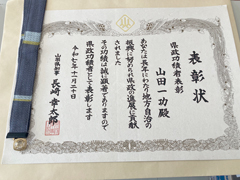 表彰状
県政功績者表彰
山田一功殿
あなたは長年にわたり地方自治の
振興に努められ県政の進展に貢献
されました
その功績は誠に顕著でありますので
県政功績者として表彰します
令和七年十一月二十日
山梨県知事 長崎幸太郎